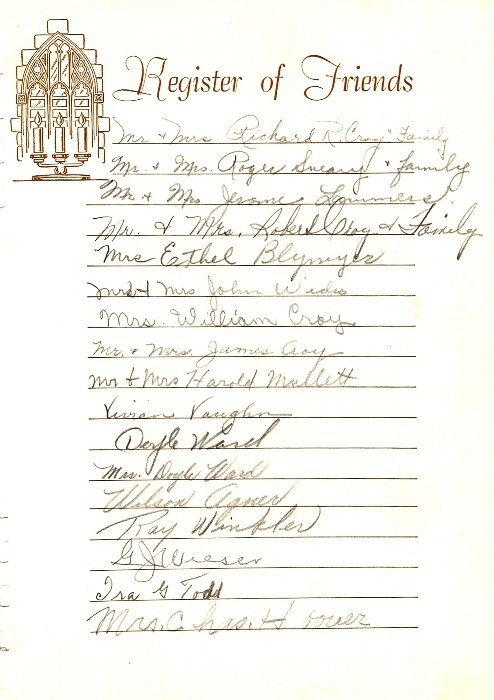 Register of Friends
Mr & Mrs Richard R. Croy & Family
Mr. & Mrs. Roger Sneary & family
Mr. & Mrs Jerome Lammers.
Mr. & Mrs. Robert Croy & Family
Mrs Ethel Blymyer
Mr & Mrs John
Mrs. William Croy
Mr. & Mrs. James Croy
Mr & Mrs Harold Mullett
Vivian Vaughn
Doyle Ward
Mrs. Doyle Ward
Wilson Agner
Ray Winkler
G J Wieser
Ira G Todd
Mrs. Chas. Hoover